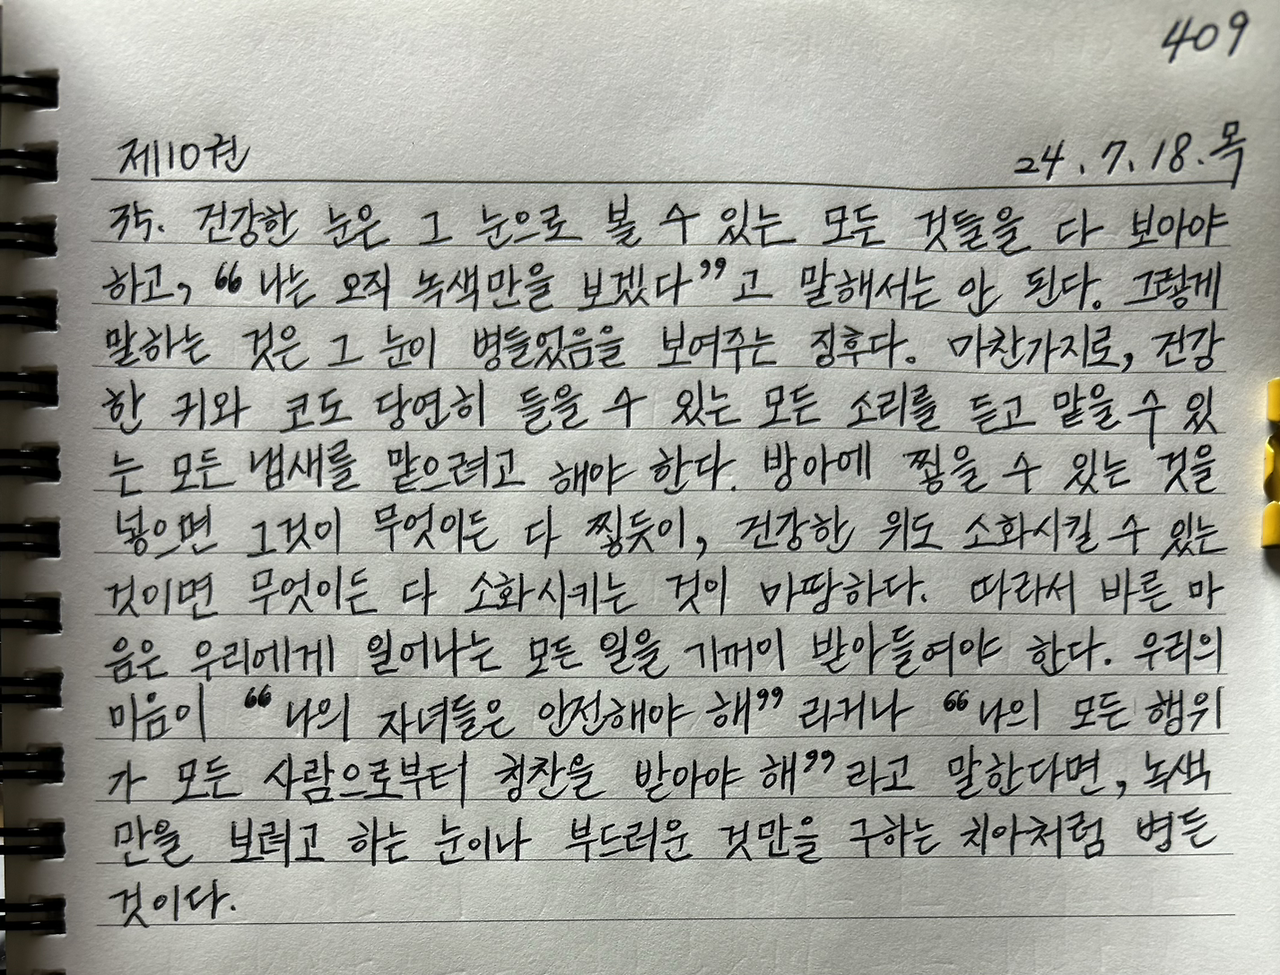 409
제10권
24. 7. 18. 목
35. 건강한 눈은 그 눈으로 볼 수 있는 모든 것들을 다 보아야
하고, “나는 오직 녹색만을 보겠다”고 말해서는 안 된다. 그렇게
말하는 것은 그 눈이 병들었음을 보여주는 징후다. 마찬가지로, 건강
한 귀와 코도 당연히 들을 수 있는 모든 소리를 듣고 맡을 수 있
는 모든 냄새를 맡으려고 해야 한다. 방아에 찧을 수 있는 것을
넣으면 그것이 무엇이든 다 찧듯이, 건강한 위도 소화시킬 수 있는
것이면 무엇이든 다 소화시키는 것이 마땅하다. 따라서 바른 마
음은 우리에게 일어나는 모든 일을 기꺼이 받아들여야 한다. 우리의
마음이 “나의 자녀들은 안전해야 해”라거나 “나의 모든 행위
가 모든 사람으로부터 칭찬을 받아야 해”라고 말한다면, 녹색
만을 보려고 하는 눈이나 부드러운 것만을 구하는 치아처럼 병든
것이다.